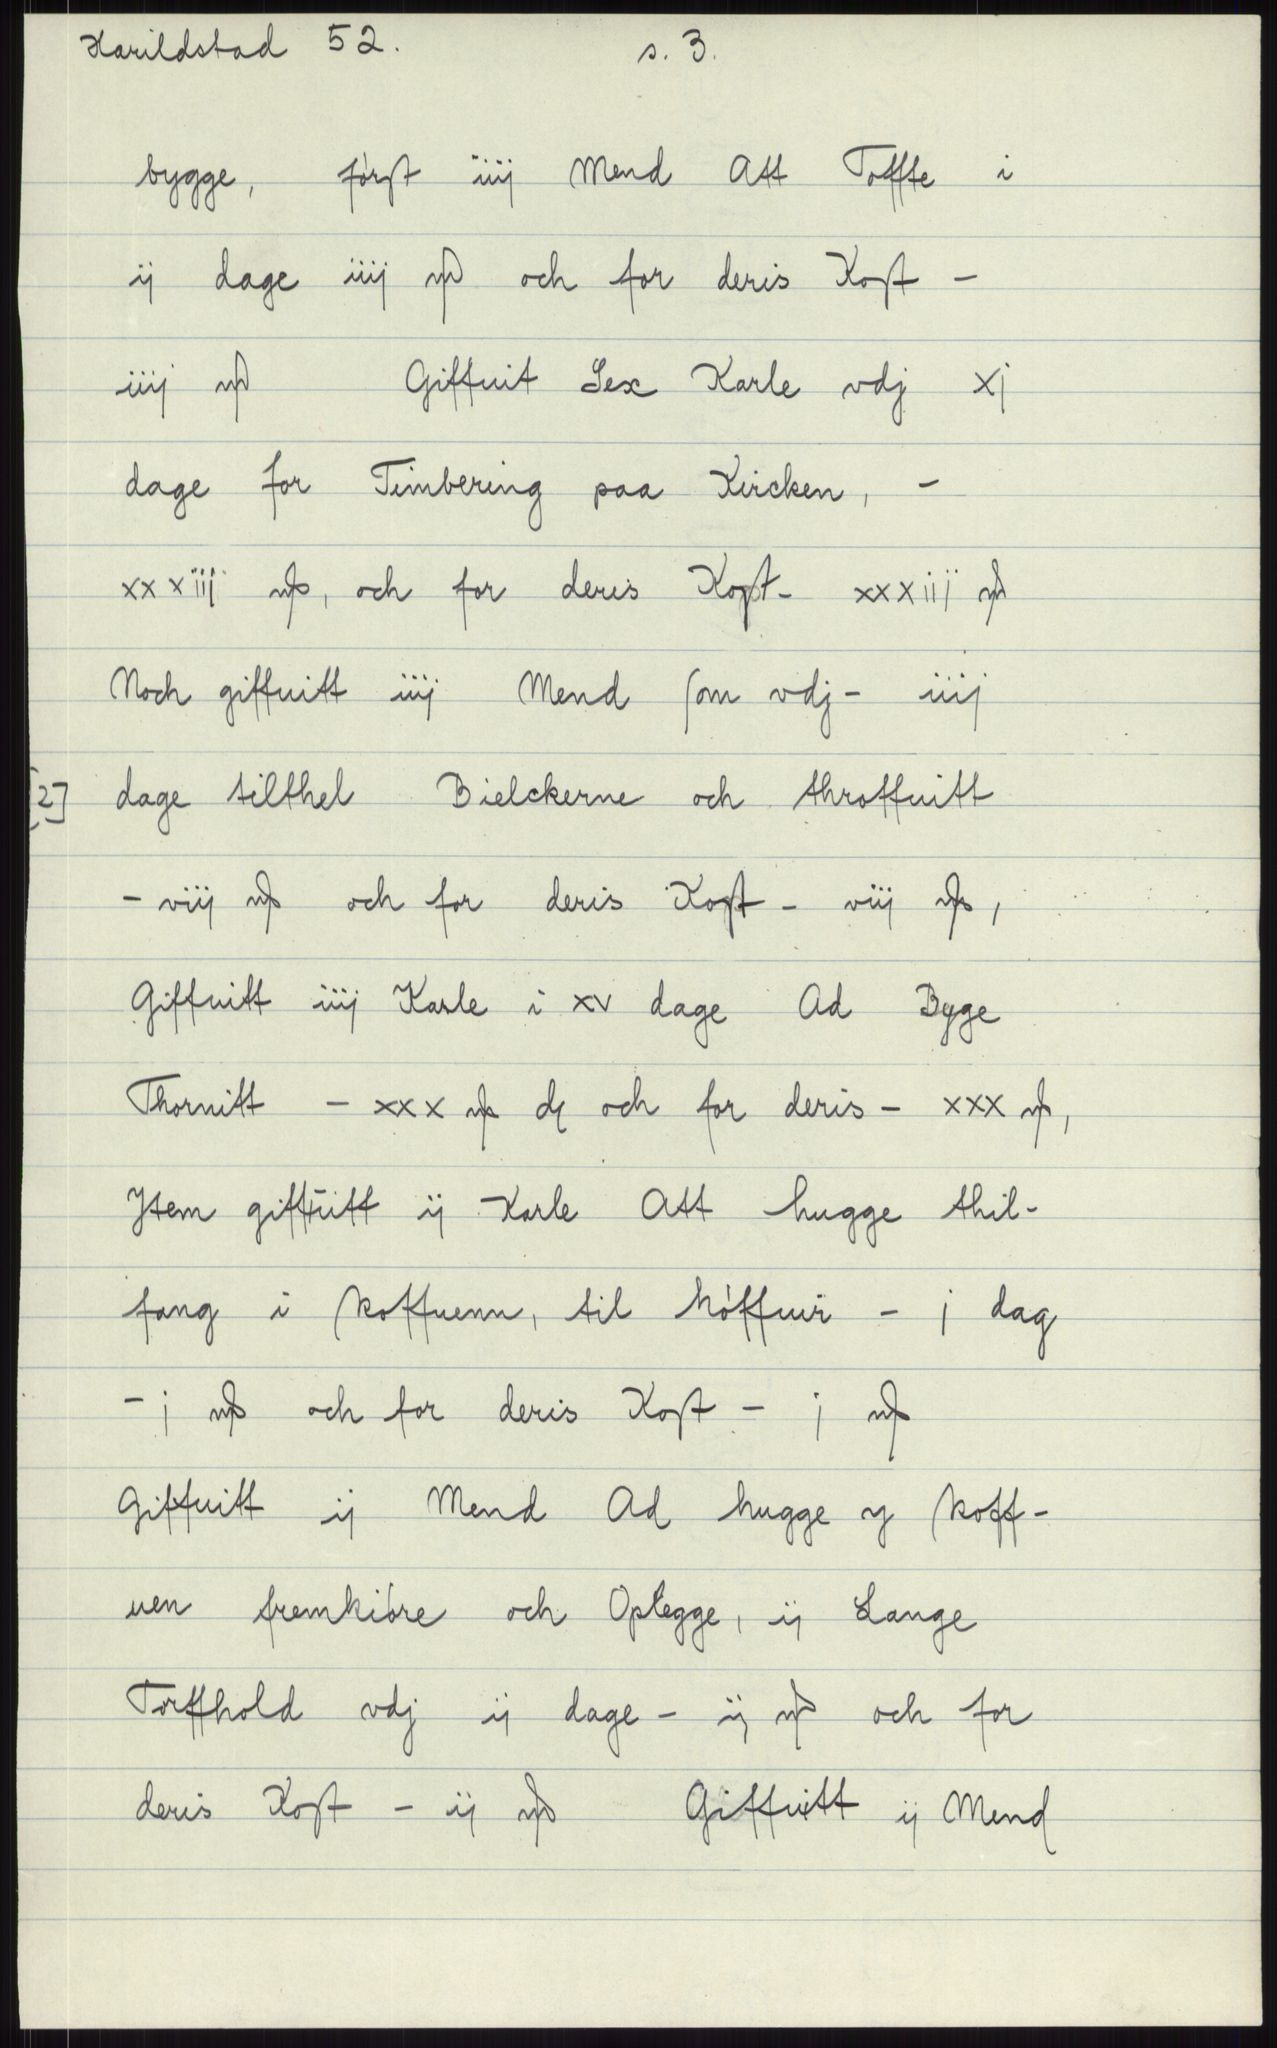 Karildstad 52. s. 3.
bygge, først iiij Mend Att Toffte i
ij dage iiij mʒ och for deris Kost -
iiij mʒ Giffuit Sex Karle vdj xj
dage for Timbering paa Kircken, -
xxxiij mʒ, och for deris Kost - xxxiij mʒ
Noch giffuitt iiij Mend som vdj - iiij
[2] dage tilthel Bielckerne och throffuitt
- viij mʒ och for deris Kost - viij mʒ,
Giffuitt iiij Karle i xv dage Ad Byge
Thornitt - xxx mʒ och for deris - xxx mʒ,
Jtem giffuitt ij Karle Att hugge thil-
fang i skoffuenn, til høffuir - j dag
- j mʒ och for deris Kost - j mʒ
Giffuitt ij Mend Ad hugge y skoff-
uen fremkiøre och Oplegge, ij Lange
Torffhold vdj ij dage - ij mʒ och for
deris Kost - ij mʒ Giffuitt ij Mend